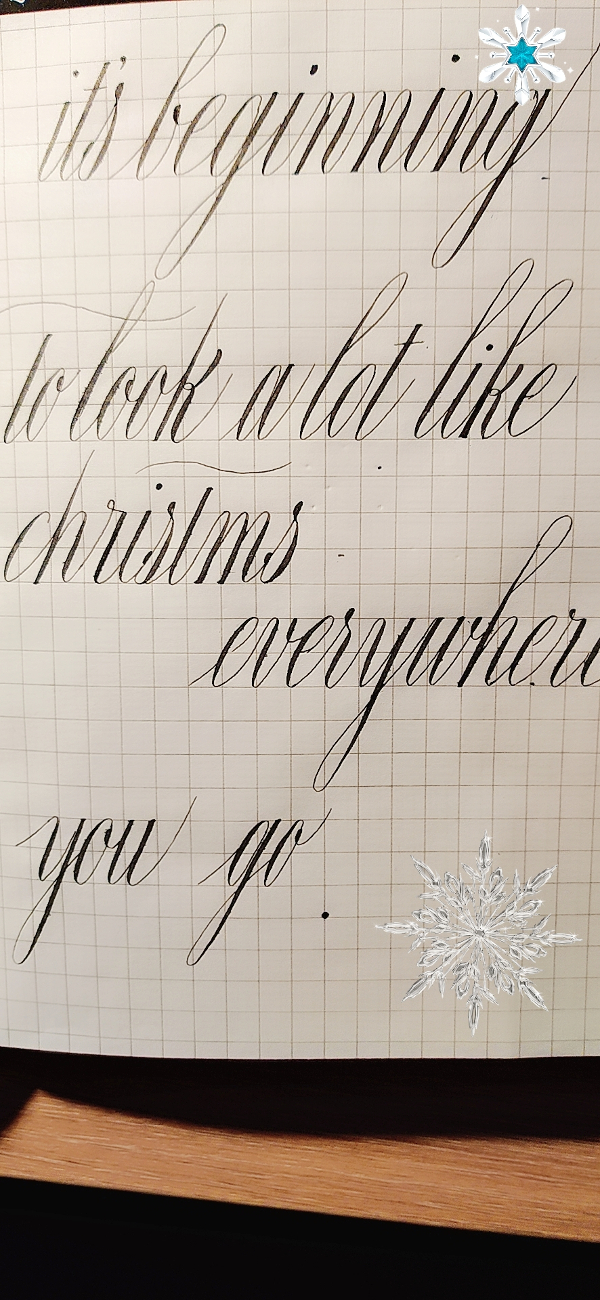 it's beginning
to look a lot like
christms
everywhere
you go.